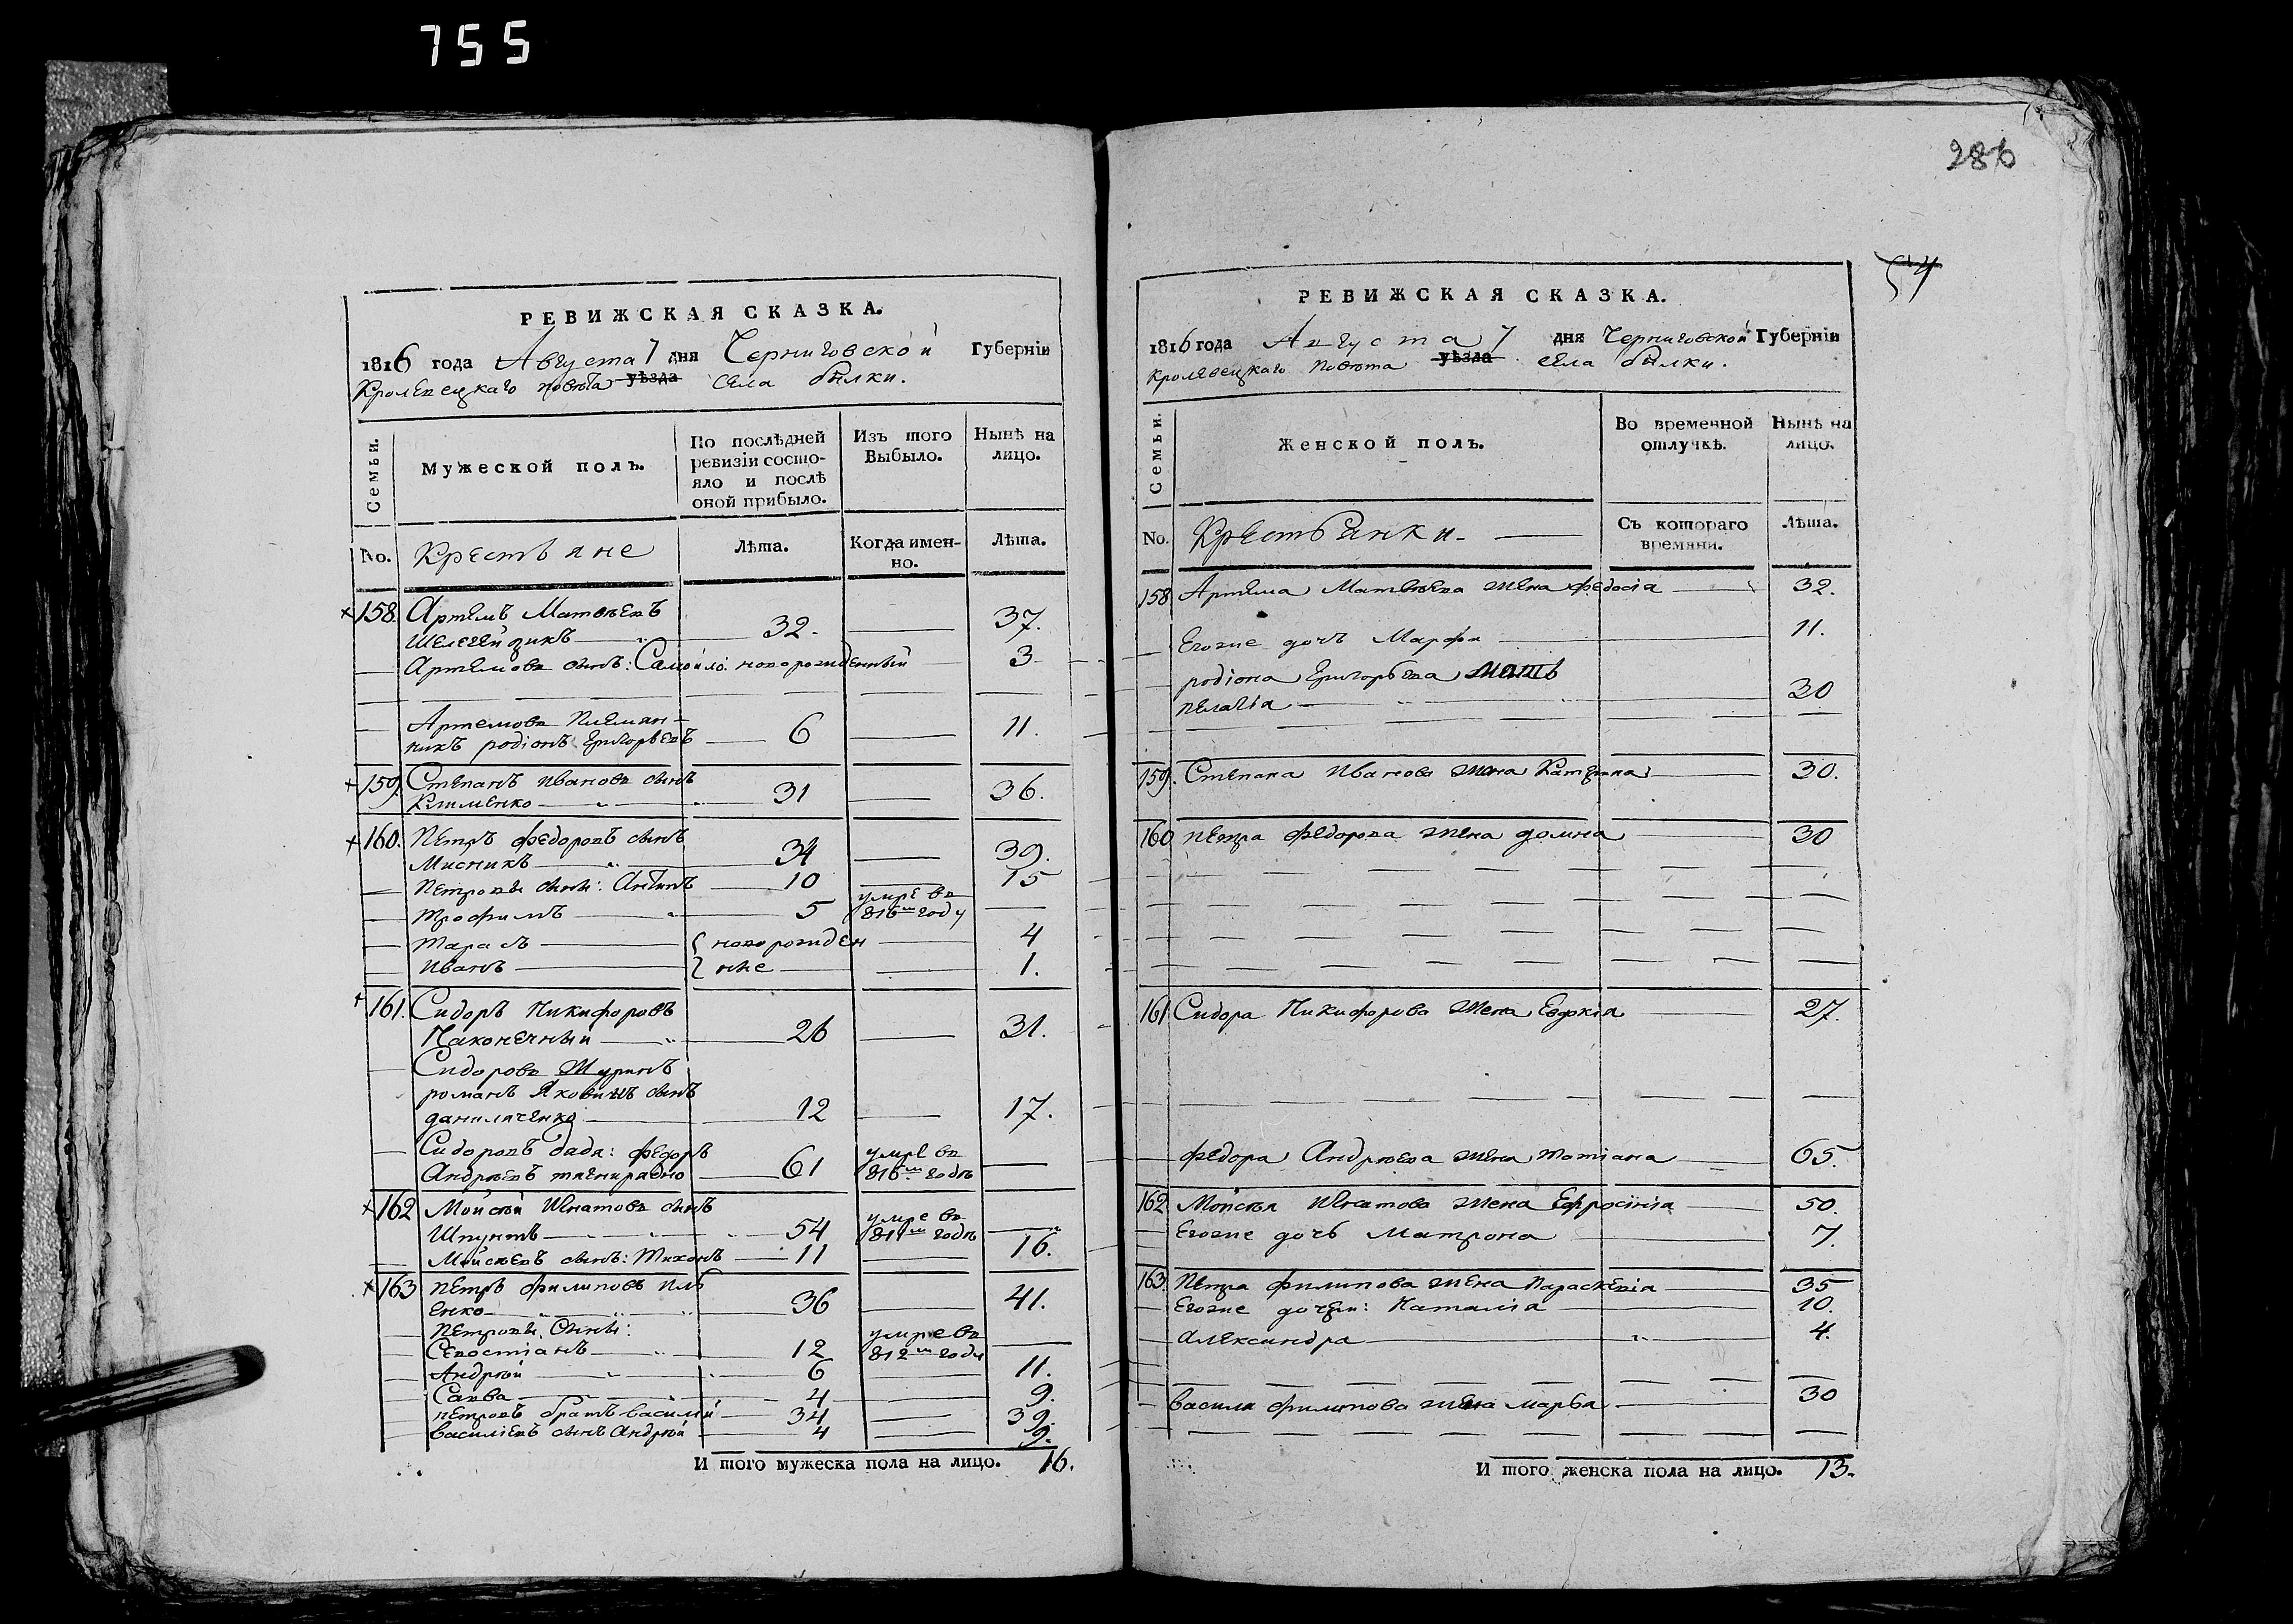 755
РЕВИЖСКАЯ СКАЗКА.
1816 года Августа 7 дня Черниговской Губерніи
Кролевецкаго повѣта уѣзда села былки.
Семьи.
Мужеской полъ.
По послѣдней ревизіи состояло и послѣ оной прибыло.
Изъ того Выбыло.
Нынѣ на лицо.
No.
Крестьяне
Лѣта.
Когда именно.
Лѣта.
158. Артемъ Матвѣевъ
32. 37.
Артемовъ сынъ: Самойло: новорожденный 3
Артемовъ племян-
никъ родіонъ Григорьевъ 6 11.
159. Степанъ Ивановъ сынъ
Клименко 31 36.
160. Петръ федоровъ сынъ
Мисникъ 34 39.
Петровы сыны: Антипъ 10 15
трофимъ 5 умре въ 816м году
тарасъ новорожден 4
иванъ ные 1.
161. Сидоръ Никифоровъ
Наконечный 26 31.
Сидоровъ Шуринъ
романъ Яковивъ сынъ
даниличенко 12 17.
Сидоровъ дядя: федоръ
Андрѣевъ 61 умре въ 816м годѣ
162 Мойсей Игнатовъ сынъ
Шпунтъ 54 умре въ 811м годѣ
Мойсѣевъ сынъ: Тихонъ 11 16.
163 Петръ филиповъ Иль
енко 36 41.
Петровы Сыны:
Севостіанъ 12 умре въ 812м году
Андрѣй 6 11.
Савва 4 9.
петровъ братъ василій 34 39.
василіевъ сынъ Андрѣй 4 9.
И того мужеска пола на лицо. 16.
286
54
РЕВИЖСКАЯ СКАЗКА.
1816 года Августа 7 дня Черниговской Губерніи
Кролевецкаго повѣта уѣзда села былки.
Семьи.
Женской полъ.
Во временной отлучкѣ.
Нынѣ на лицо.
No.
Крестьянки
Съ котораго времяни.
Лѣта.
158 Артема Матвѣева жена федосія 32.
Егоже дочь Марфа 11.
родіона Григорьева мать
пелагія 30
159. Степана Иванова жена Катерина 30.
160 петра федорова жена домна 30
161 Сидора Никифорова жена Евдокія 27.
федора Андрѣева жена татіана 65.
162 Мойсея Игнатова жена Ефросинія 50.
Егоже дочь Матрона 7.
163. Петра филипова жена Параскевія 35
Егоже дочери: Наталія 10.
александра 4.
василя филипова жена марѳа 30
И того женска пола на лицо. 13.